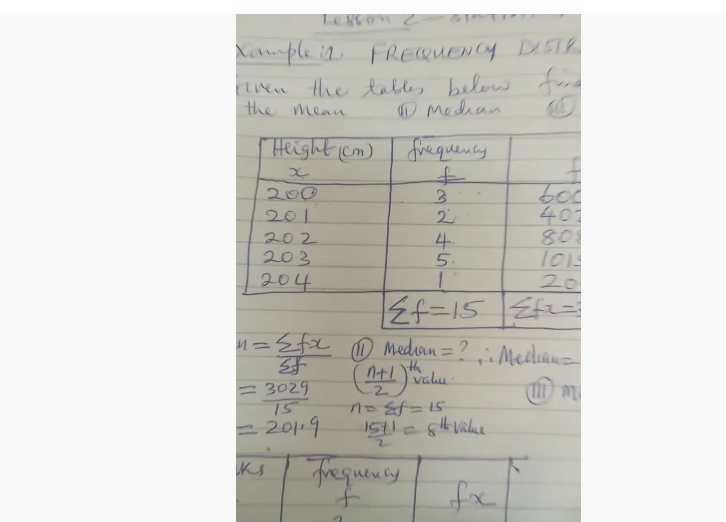 Lesson 2
xample 1. FREQUENCY DISTR
iven the tables below find
the mean (II) Median (III)
Height (cm) frequency
x f f
200 3 600
201 2 402
202 4. 808
203 5. 1015
204 1 20
Σf = 15 Σfx = 3
n = Σfx/Σf (II) Median = ? ∴ Median =
= 3029/15 (n+1/2)th value. (III) M
n = Σf = 15
= 201.9 15+1/2 = 8th value
ks frequency
f fx